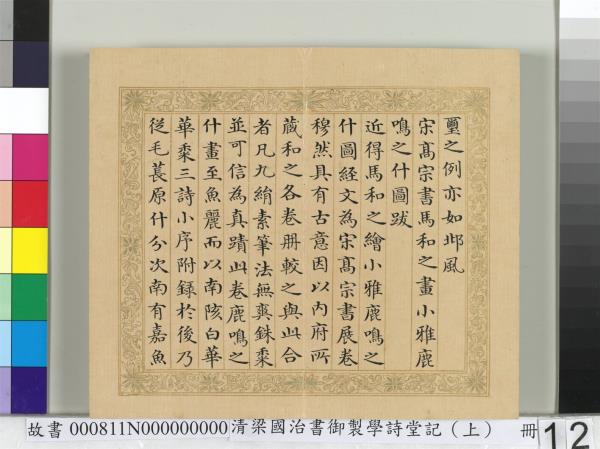 璽之例亦如邶風
宋髙宗書馬和之畫小雅鹿
鳴之什圖跋
近得馬和之繪小雅鹿鳴之
什圖經文為宋髙宗書展卷
穆然具有古意因以内府所
藏和之各卷冊較之與此合
者凡九絹素筆法無爽銖黍
並可信為真蹟此卷鹿鳴之
什畫至魚麗而以南陔白華
華黍三詩小序附錄於後乃
從毛萇原什分次南有嘉魚
故書 000811N000000000 清梁國治書御製學詩堂記（上） 冊 12